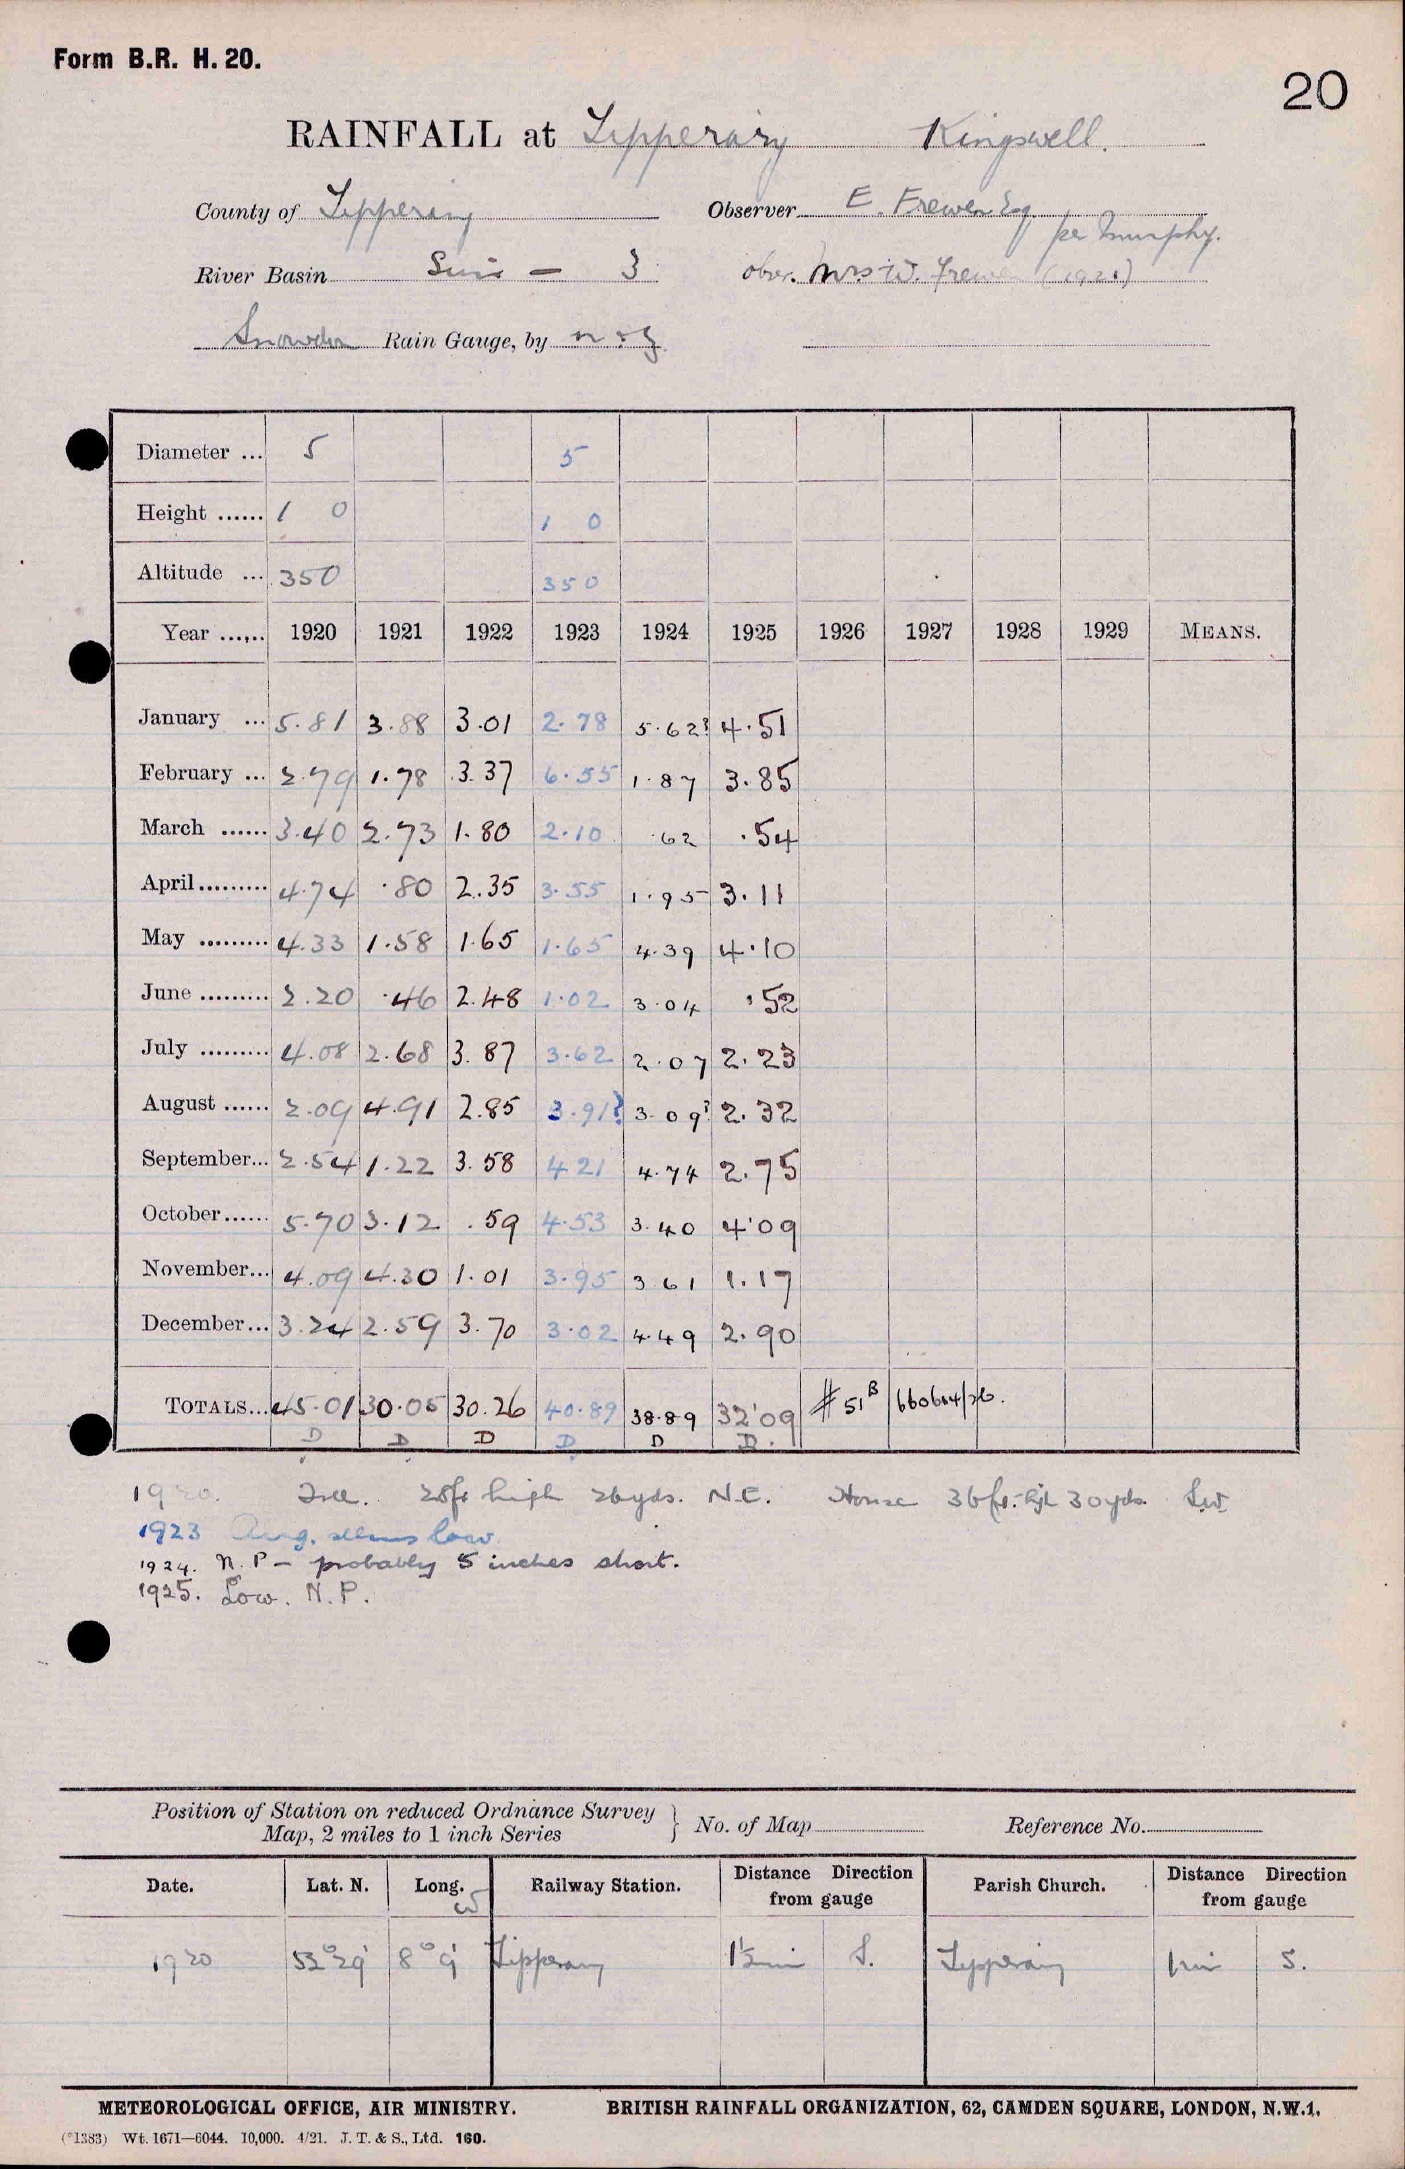 Form B.R. H. 20.
20
RAINFALL at Tipperary Kingswell.
County of Tipperary Observer E. Frewen Esq
per Murphy.
River Basin Suir — 3 obsr. Mrs W. Frewen (1921)
Snowdon Rain Gauge, by N & Z
Diameter ... 5 5
Height ...... 1 0 1 0
Altitude ... 350 350
Year ...... 1920 1921 1922 1923 1924 1925 1926 1927 1928 1929 MEANS.
January ... 5.81 3.88 3.01 2.78 5.62? 4.51
February ... 2.79 1.78 3.37 6.55 1.87 3.85
March ...... 3.40 2.73 1.80 2.10 .62 .54
April ......... 4.74 .80 2.35 3.55 1.95 3.11
May ......... 4.33 1.58 1.65 1.65 4.39 4.10
June ......... 2.20 .46 2.48 1.02 3.04 .52
July ......... 4.08 2.68 3.87 3.62 2.07 2.23
August ...... 2.09 4.91 2.85 3.91? 3.09? 2.32
September... 2.54 1.22 3.58 4 21 4.74 2.75
October...... 5.70 3.12 .59 4.53 3.40 4.09
November... 4.09 4.30 1.01 3.95 3 61 1.17
December... 3.24 2.59 3.70 3.02 4.49 2.90
TOTALS... 45.01 30.05 30.26 40.89 38.89 32.09 # 51 B 660604/26.
D D D D D D.
1920. Tree. 28ft high 26yds. N.E. House 36ft. hgh 30yds. S.W.
1923 Aug. seems low
1924. N.P – probably 5 inches short.
1925. Low. N.P.
Position of Station on reduced Ordnance Survey
Map, 2 miles to 1 inch Series } No. of Map Reference No.
Date. Lat. N. Long. W Railway Station. Distance Direction from gauge Parish Church. Distance Direction from gauge
1920 52° 29' 8° 9' Tipperary 1½ mi S. Tipperary 1 mi S.
METEOROLOGICAL OFFICE, AIR MINISTRY. BRITISH RAINFALL ORGANIZATION, 62, CAMDEN SQUARE, LONDON, N.W.1.
(*1383) Wt. 1671—6044. 10,000. 4/21. J. T. & S., Ltd. 160.